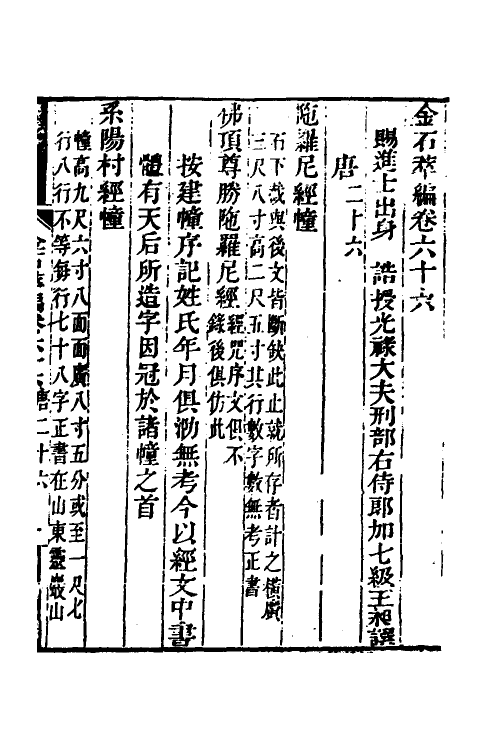 金石萃編卷六十六
賜進士出身 誥授光祿大夫刑部右侍郎加七級王昶譔
唐二十六
陁羅尼經幢
石下截與後文皆斷缺此止就所存者計之橫廣
三尺八寸高二尺五寸其行數字數無考正書
佛頂尊勝陁羅尼經經咒序文俱不
錄後俱仿此
按建幢序記姓氏年月俱泐無考今以經文中書
體有天后所造字因冠於諸幢之首
釆陽村經幢
幢高九尺六寸八面面廣八寸五分或至一尺七
行八行不等每行七十八字正書在山東靈巖山